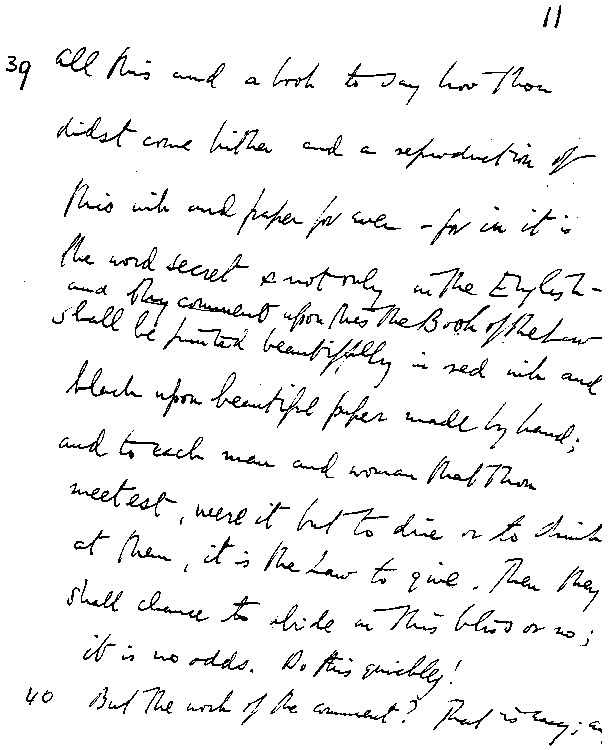 11
39 All this and a book to say how Thou
didst come hither and a reproduction of
this ink and paper for ever - for in it is
the word secret & not only in the English -
and thy comment upon this the Book of the Law
shall be printed beautifully in red ink and
black upon beautiful paper made by hand;
and to each man and woman that Thou
meetest, were it but to dine or to drink
at them, it is the Law to give. Then they
shall chance to abide in this bliss or no;
it is no odds. Do this quickly!
40 But the work of the comment? That is easy; an